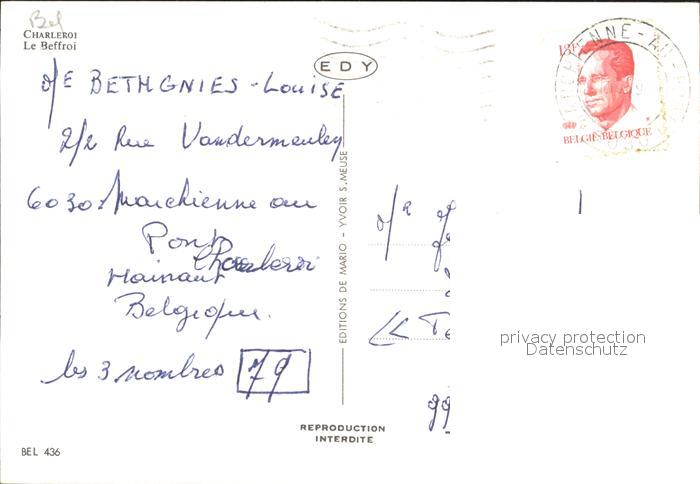 Bel
CHARLEROI
Le Beffroi
EDY
BETHGNIES - Louise
2/2 Rue Vandermeuley
6030 Marchienne au
Pont
Charleroi
Hainaut
Belgique.
les 3 nombres 79
EDITIONS DE MARIO - YVOIR S/MEUSE
13F
BELGIË-BELGIQUE
privacy protection
Datenschutz
REPRODUCTION
INTERDITE
BEL 436